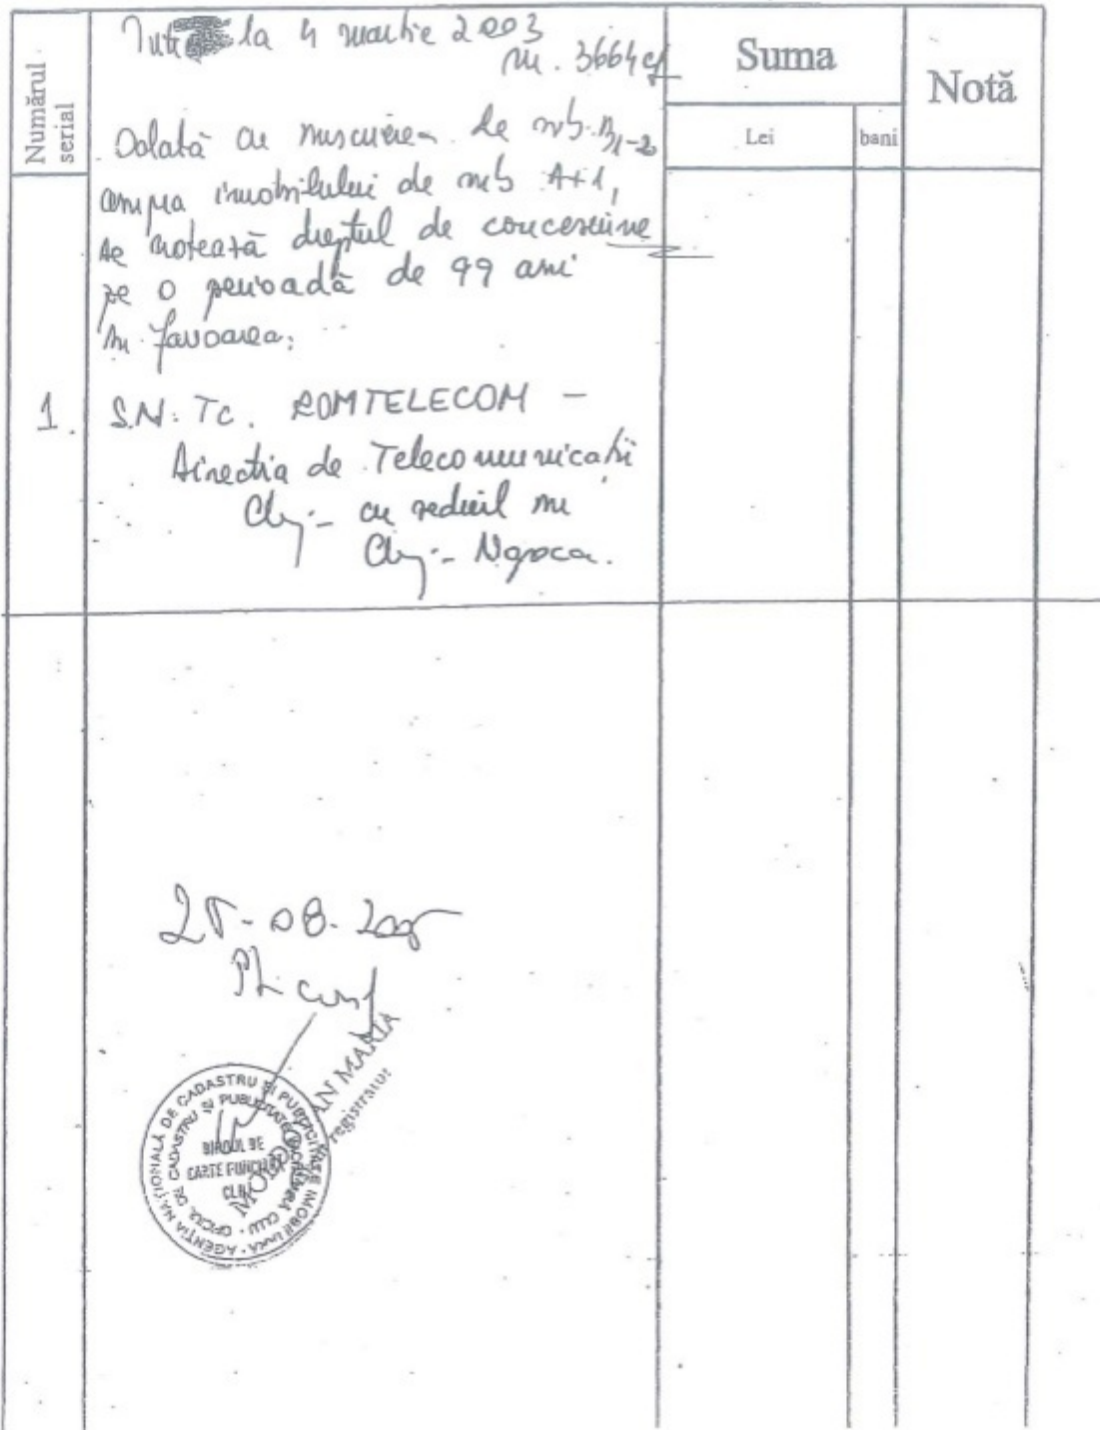 Numărul
serial
Suma
Notă
Lei
bani
la 4 martie 2003
nr. 3664 cf
Odată cu înscrierea de sub B1-2
asupra imobilului de sub A+1,
se notează dreptul de concesiune
pe o perioadă de 99 ani
în favoarea:
1. S.N. Tc. ROMTELECOM –
Direcția de Telecomunicații
Cluj – cu sediul în
Cluj – Napoca.
Pt. conf
AGENȚIA NAȚIONALĂ DE CADASTRU ȘI PUBLICITATE IMOBILIARĂ
OFICIUL DE CADASTRU ȘI PUBLICITATE IMOBILIARĂ CLUJ
BIROUL DE
CARTE FUNCIARĂ
CLUJ
MARIA
registrator